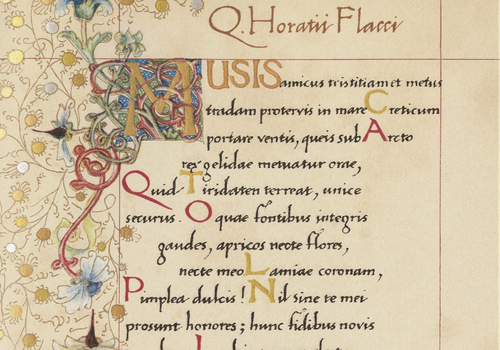 Q. Horatii Flacci
MUSIS amicus tristitiam et metus
tradam protervis in mare Creticum
portare ventis, queis sub Arcto
rex gelidae metuatur orae,
Quid Tiridaten terreat, unice
securus. O quae fontibus integris
gaudes, apricos necte flores,
necte meo Lamiae coronam,
Pimplea dulcis! Nil sine te mei
prosunt honores; hunc fidibus novis